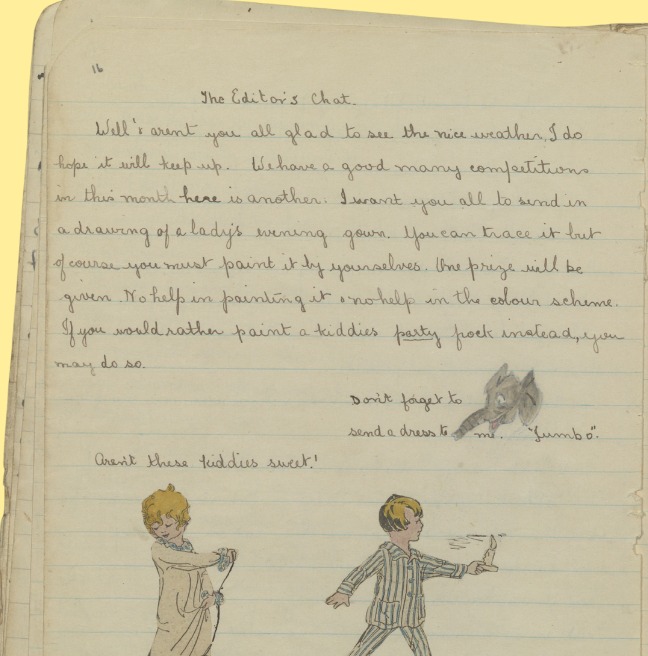 16
The Editor's Chat.
Well's arent you all glad to see the nice weather, I do
hope it will keep up. We have a good many competitions
in this month here is another. I want you all to send in
a drawing of a lady's evening gown. You can trace it but
of course you must paint it by yourselves. One prize will be
given. No help in painting it & no help in the colour scheme.
If you would rather paint a kiddies party frock instead, you
may do so.
Don't forget to
send a dress to me. "Jumbo".
Aren't these kiddies sweet!